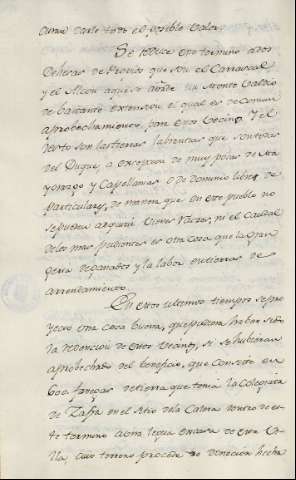 darle todo el posible valor.
Se reduce este termino a dos
Dehesas de Propios que son el Carrascal
y el Alcor a que se añade un Monte Valdio
de bastante extension el qual es de comun
aprobechamiento para estos Vecinos y el
resto son las tierras labrantias que son todas
del Duque, a excepcion de muy pocas de
y Capellanias o de dominio libre de
Particulares, de manera que en este pueblo no
se pueden adquirir vienes raices, ni el caudal
de los mas pudientes es otra cosa que la gran
geria de ganados y la labor en tierras de
arrendamiento.
En estos ultimos tiempos se pro
yecto una cosa buena, que pudiera haber sido
la redencion de estos Vecinos, si se hubieran
aprobechado del beneficio, que consiste en
600 fanegas de tierra que tenia la Colegiata
de Zafra en el Sitio de la Calera dentro de es
te termino a otra legua escasa de esta Vi
lla, cuio terreno procede de donacion hecha